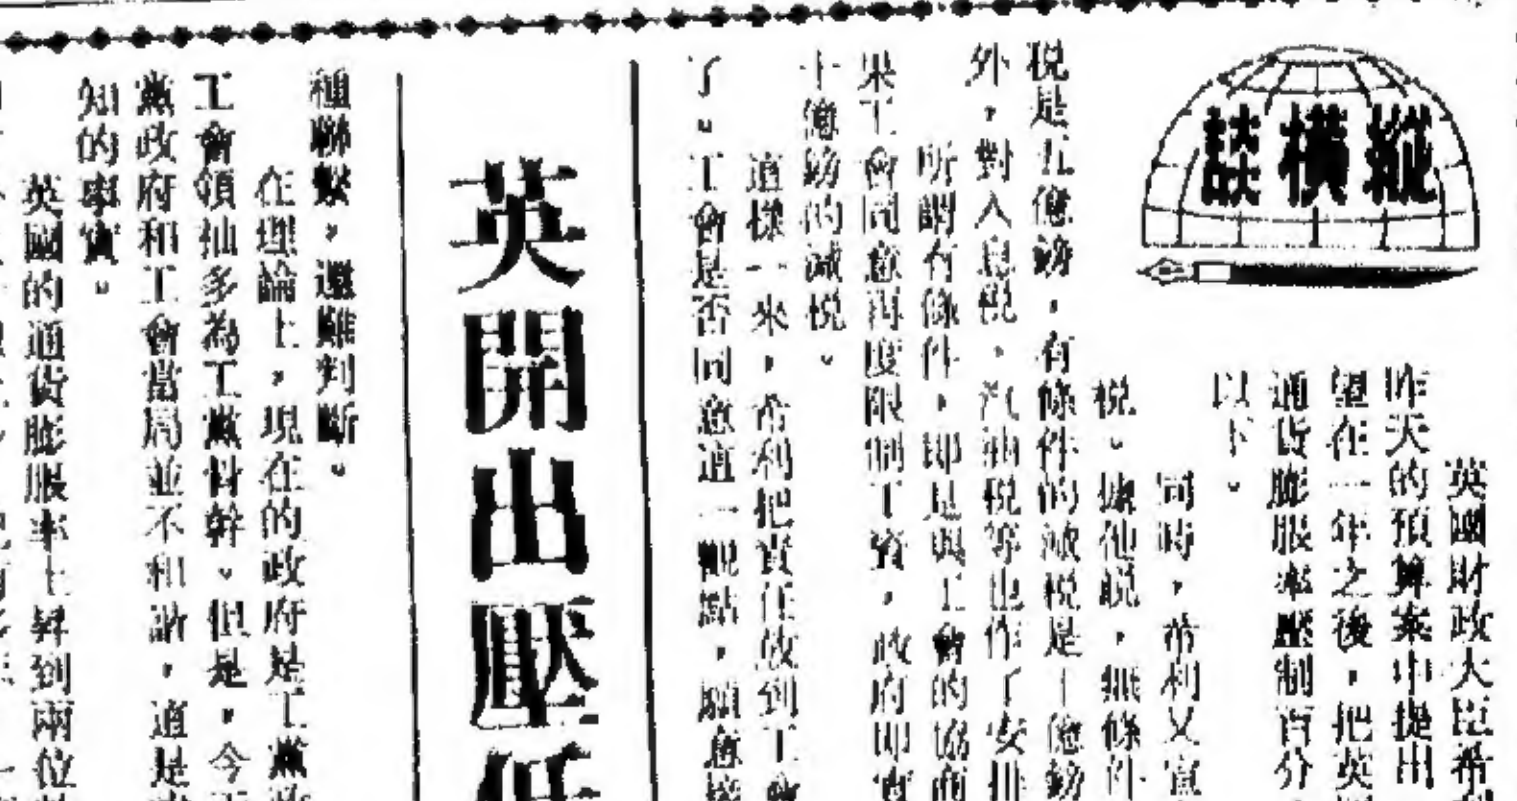 縱橫談
英國財政大臣希
昨天的預算案中提出
望在一年之後，把英
通貨膨脹率壓制百分
以下。
同時，希利又宣
稅。據他說，無條件
稅是五億鎊，有條件的減稅是十億鎊
外，對入息稅、汽油稅等也作了安排
所謂有條件，即是與工會的協商
果工會同意再度限制工資，政府即實
十億鎊的減稅。
這樣一來，希利把責任放到工會
了。工會是否同意這一觀點，願意接
英開出壓低
種聯繫，還難判斷。
在理論上，現在的政府是工黨政
工會領袖多為工黨骨幹。但是，今
黨政府和工會當局並不和諧，這是
知的事實。
英國的通貨膨脹率上昇到兩位